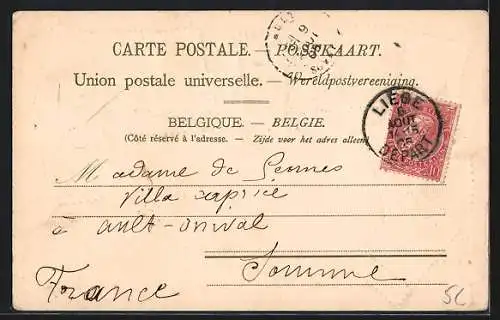 CARTE POSTALE. — POSTKAART.
Union postale universelle. — Wereldpostvereeniging.
BELGIQUE. — BELGIE.
(Côté réservé à l'adresse. — Zijde voor het adres alleen)
LIÉGE
AOUT
DÉPART
Madame de Pennes
Villa caprice
à ault-onival
Somme
France
SL